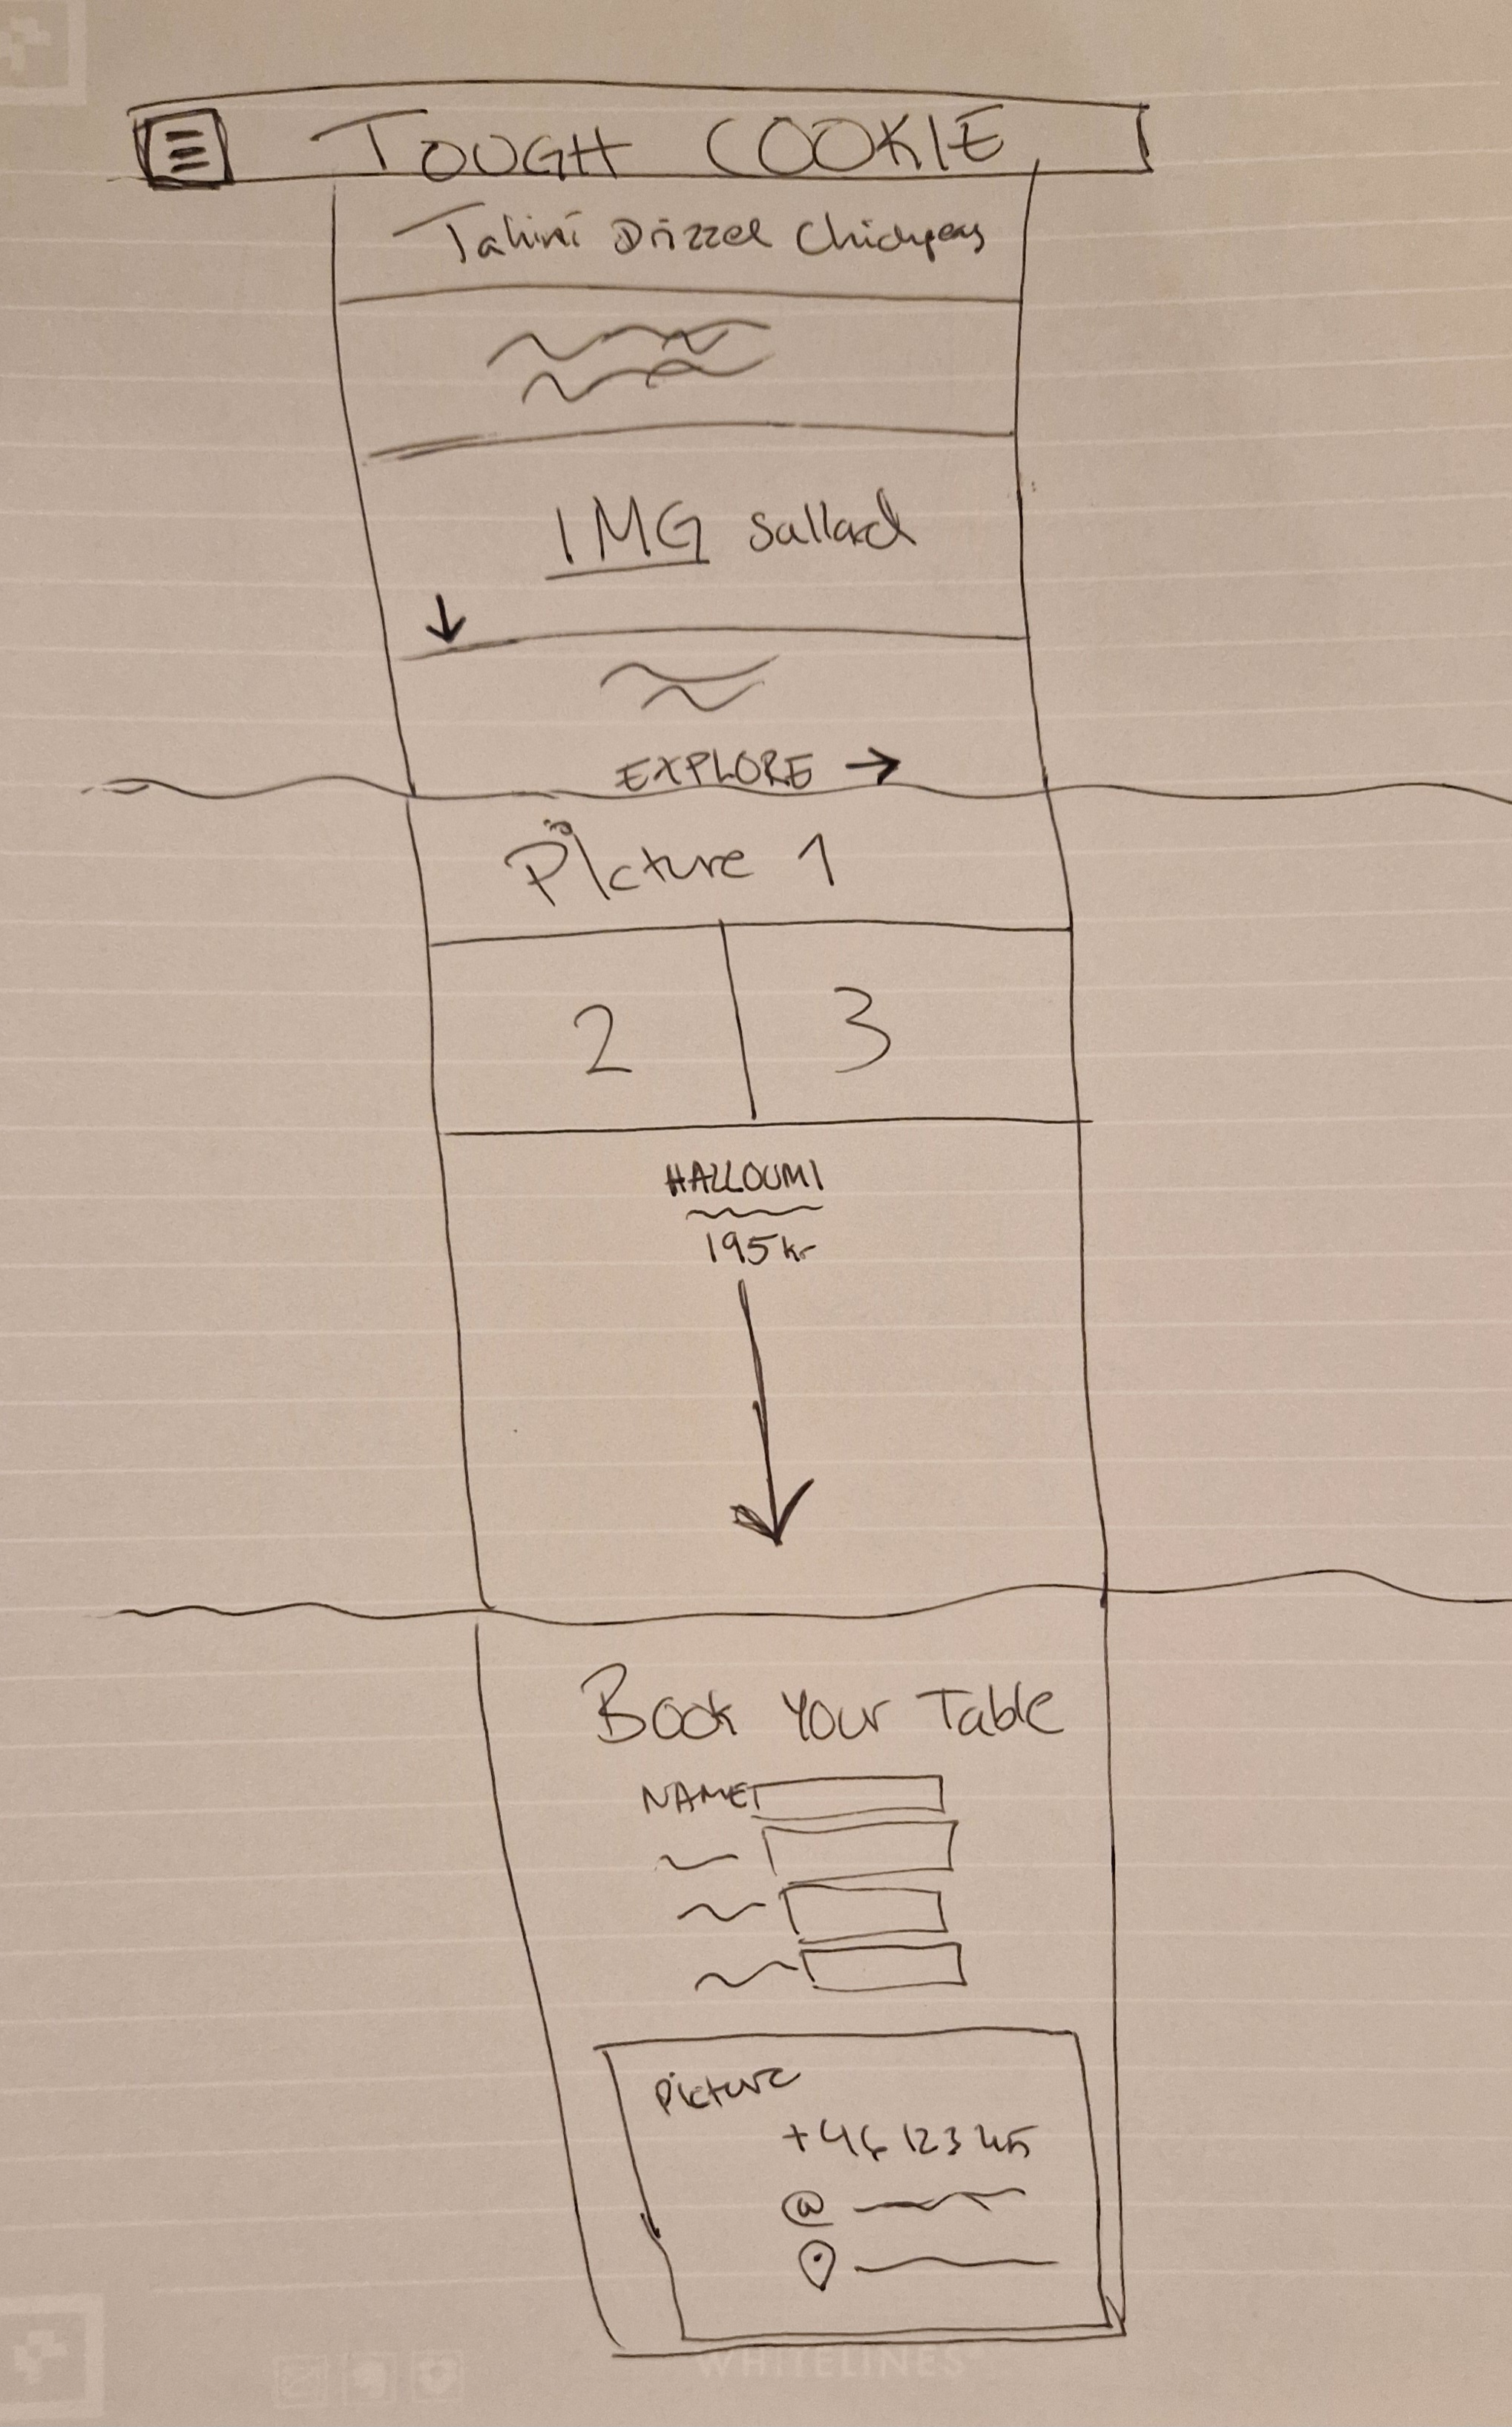 TOUGH COOKIE
Tahini Drizzel Chickpeas
IMG sallad
EXPLORE →
Picture 1
2 3
HALLOUMI
195 kr
Book Your Table
NAME
Picture
+46 123 45
@
WHITELINES